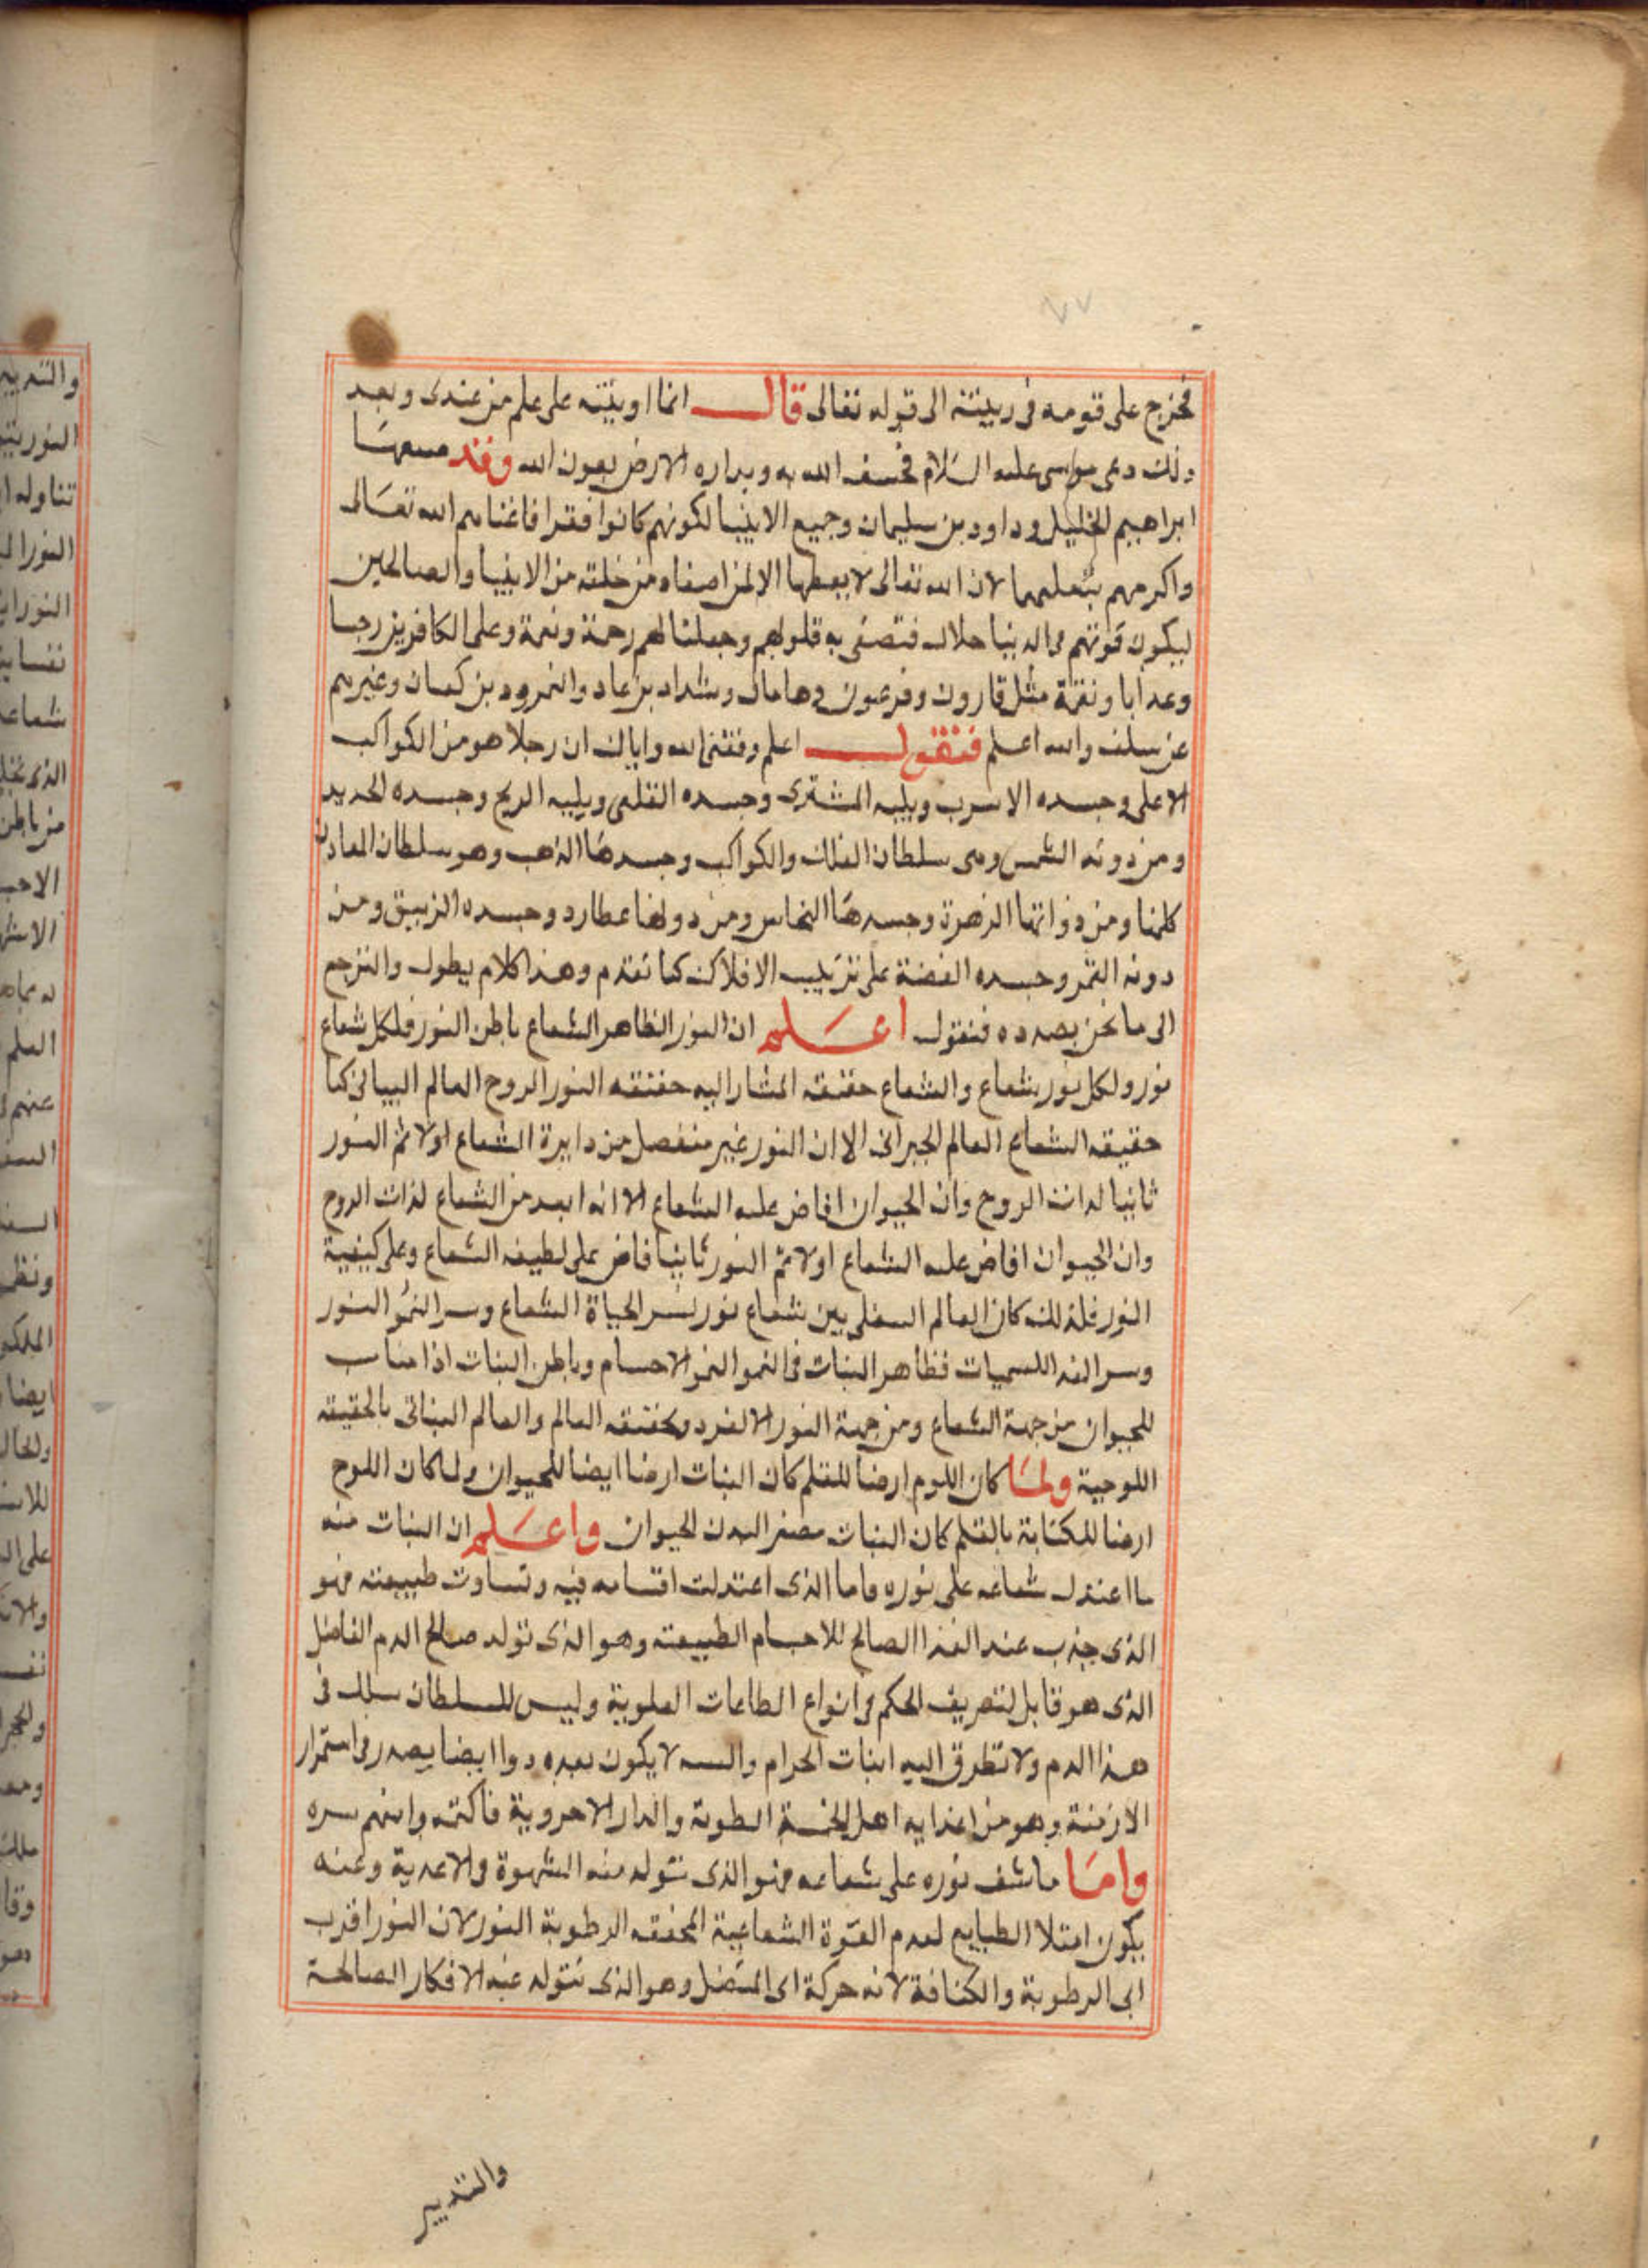 ٧٧
فخرج على قومه في زينته الى قوله تعالى قال انما اوتيته على علم من عندى وبعد
ذلك دعى موسى عليه السلام فخسف الله به وبداره الارض بعون الله وقد
ابراهيم الخليل وداود بن سليمان وجميع الانبيا لكونهم كانوا فقرا فاغناهم الله تعالى
واكرمهم بتعليمها لان الله تعالى لا يعطيها الا لمن اصفاه من خلقه من الانبيا والصالحين
ليكون قوتهم في الدنيا حلال فتصفى به قلوبهم وجعلنا لهم رحمة ونعمة وعلى الكافرين رجسا
وعذابا ونقمة مثل قارون وفرعون وهامان وشداد بن عاد والنمرود بن كنعان وغيرهم
عن سلف والله اعلم فنقول اعلم وفقنى الله واياك ان رجلا هو من الكواكب
الاعلى وجسده الاسرب ويليه المشترى وجسده القلعى ويليه المريخ وجسده الحديد
ومن دونه الشمس وهى سلطان الفلك والكواكب وجسدها الذهب وهو سلطان المعادن
كلها ومن دونها الزهرة وجسدها النحاس ومن دونها عطارد وجسده الزيبق ومن
دونه القمر وجسده الفضة على ترتيب الافلاك كما تقدم وهذا كلام يطول والنرجع
الى ما نحن بصدده فنقول اعلم ان النور الظاهر الشعاع باطن النور فلكل شعاع
نور ولكل نور شعاع والشعاع حقيقه المشار اليه حقيقه النور الروح العالم كما
حقيقه الشعاع العالم الا ان النور غير منفصل من دايرة الشعاع اولا ثم النور
ثانيا لذات الروح وان الحيوان افاض عليه الشعاع الا انه ابعد من الشعاع لذات الروح
وان الحيوان افاض عليه الشعاع اولا ثم النور ثانيا فاض على لطيفه الشعاع وعلى كيفية
النور فلذلك كان العالم السفلى بين شعاع نور لسر الحياة الشعاع وسر النمو النور
وسر فظاهر النبات في النمو النمو الاجسام وباطن النبات اذا مناسب
للحيوان من جهة الشعاع ومن جهة النور الانفرد العالم والعالم النباتى بالحقيقه
اللوحية ولما كان اللوح ارضا للقلم كان النبات ارضا ايضا للحيوان ولما كان اللوح
ارضا للكتابة بالقلم كان النبات لبدن الحيوان واعلم ان النبات منه
ما اعتدل شعاعه على نوره واما الذى اعتدلت اقسامه فيه وتساوت طبيعته فهو
الذى جذب عند الغذا الصالح للاجسام الطبيعته وهو الذى تولد صالح الدم الفاضل
الذى هو قابل لتصريف الحكم في انواع الطاعات العلوية وليس للسلطان سلك في
هذا الدم ولا تطرق اليه انبات الحرام لا يكون بعده دوا ايضا يصدر في استمرار
الازمنة وهو من اغذايه اهل الجنة والدار الاخروية فاكتمه وافهم سره
واما ما شف نوره على شعاعه فهو الذى تتولد منه الشهوة والاغدية وعنه
يكون امتلا الطبايع لعدم القوة الشعاعية المجففه الرطوبة النور لان النور اقرب
الى الرطوبة والكثافة لانه حركة وهو الذى تتولد عنه الافكار الصالحة
والتدبير